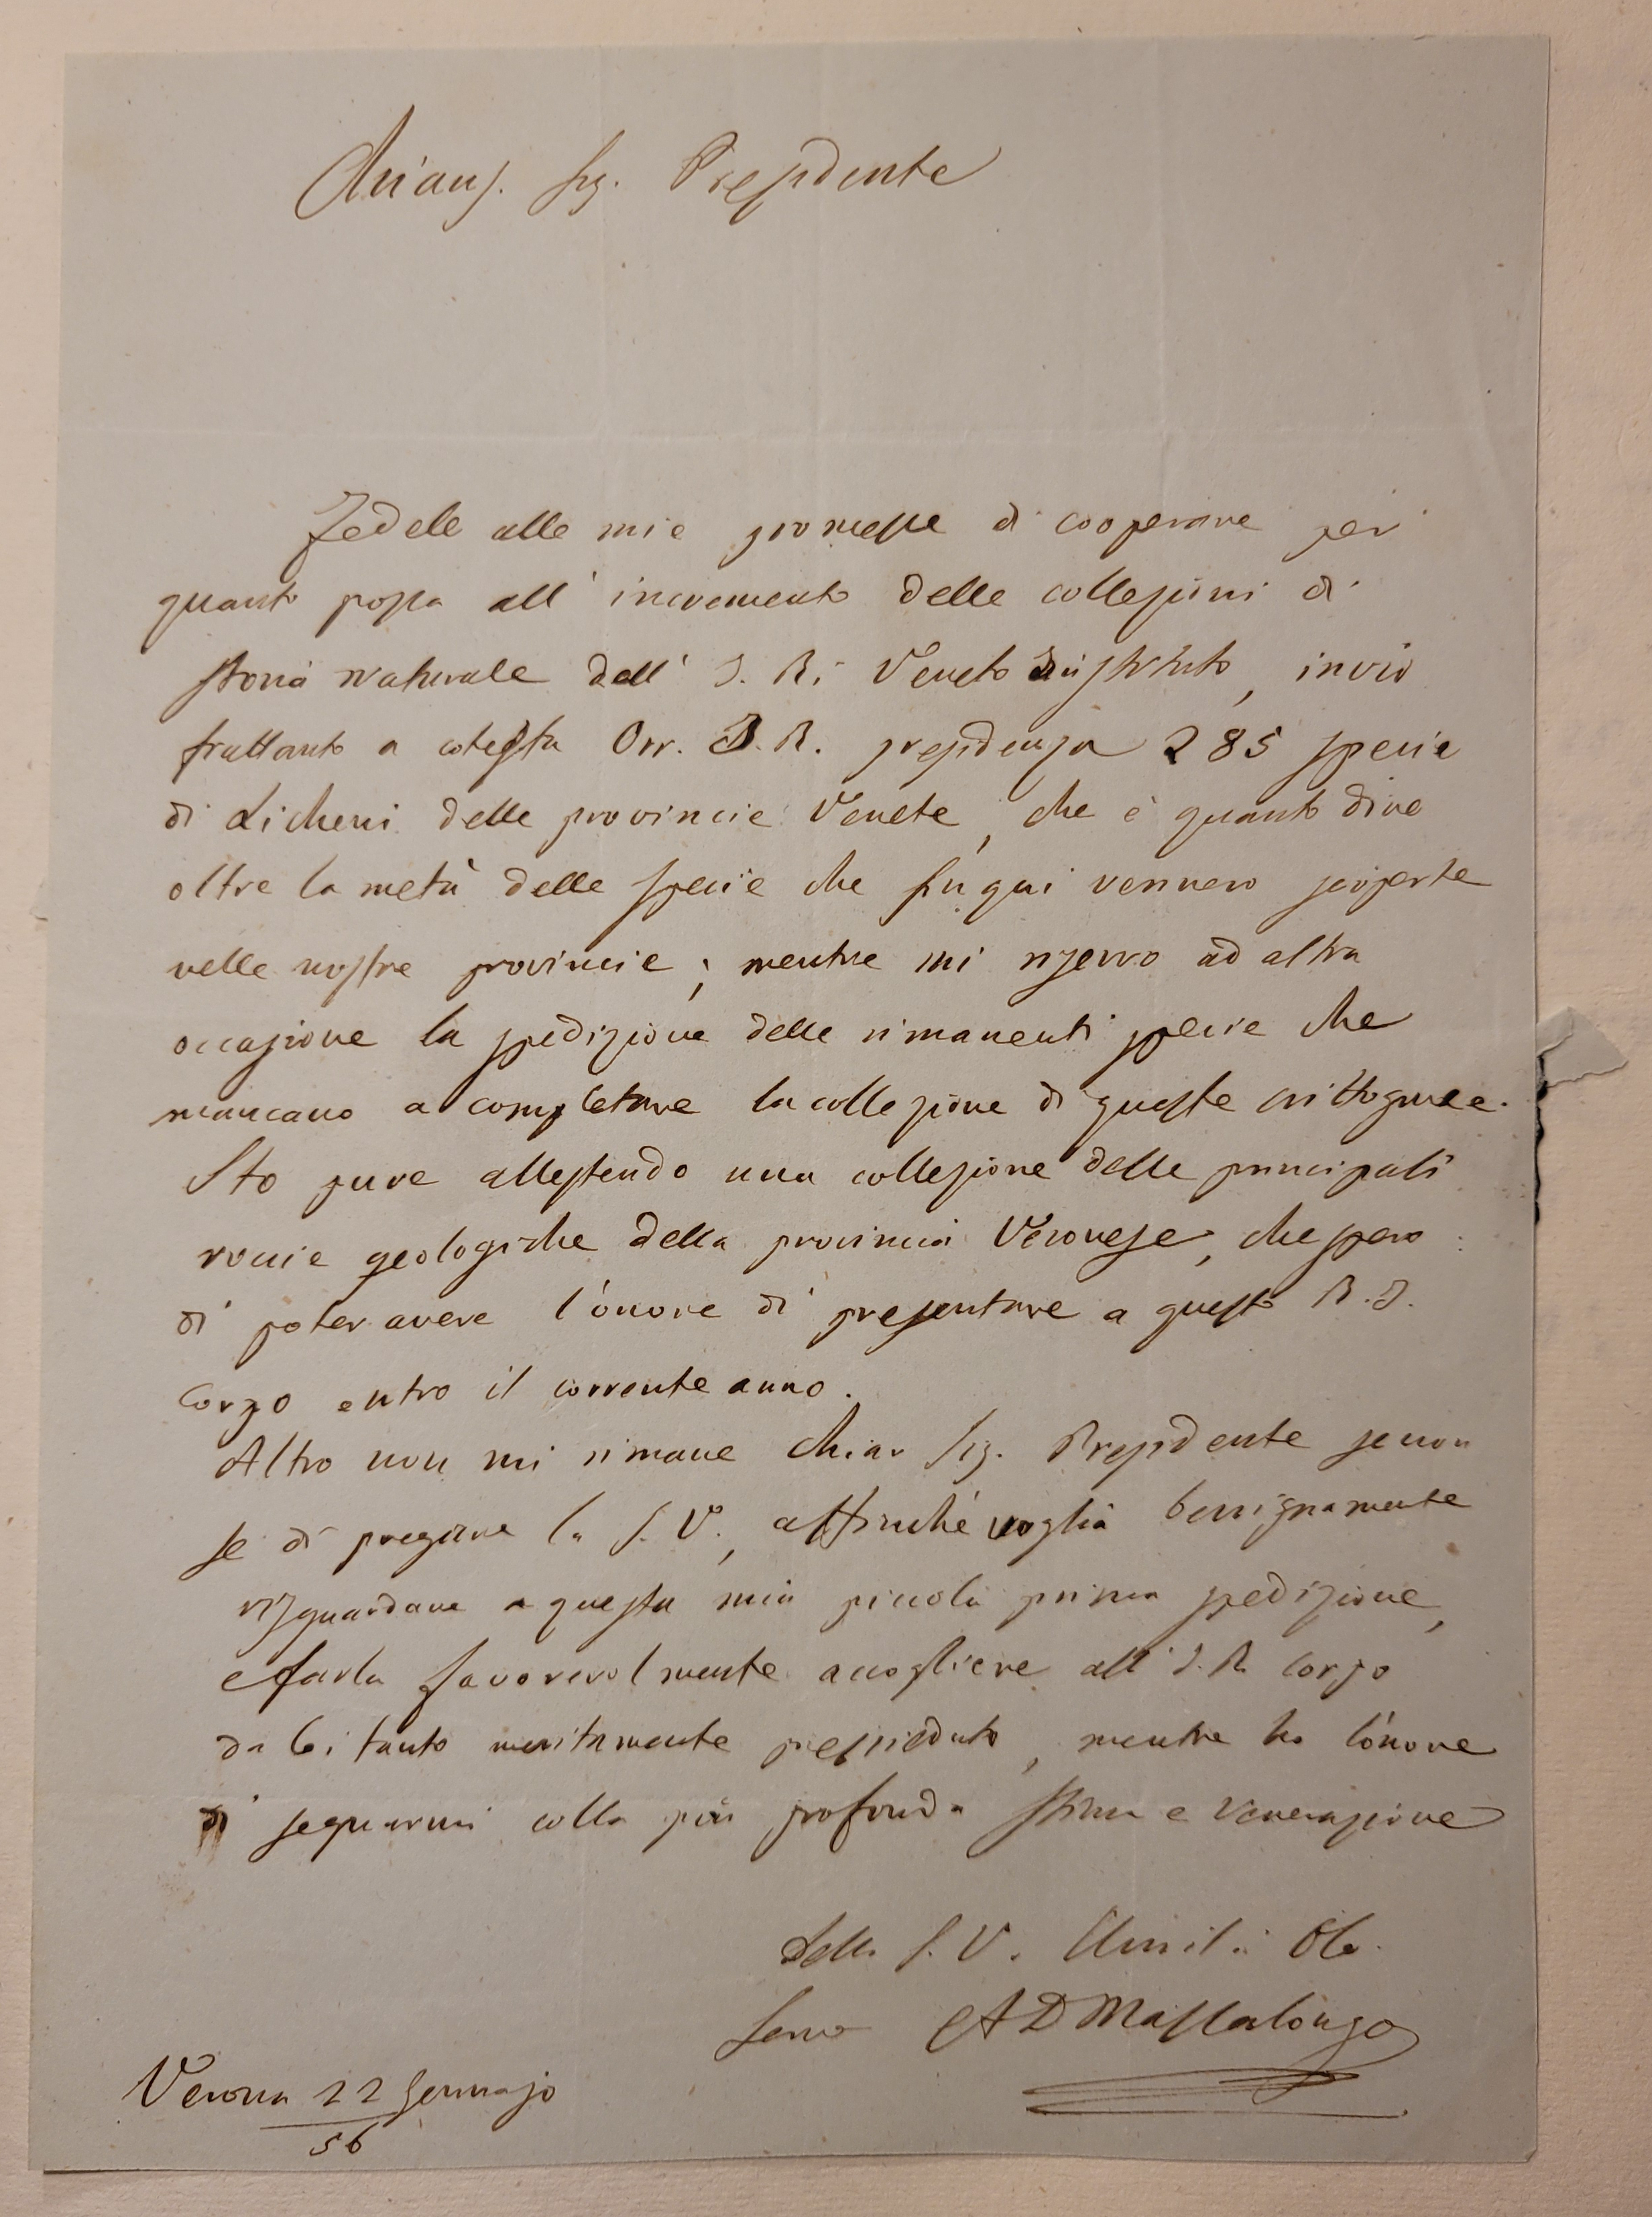 Chiaris. Sig. Presidente
Fedele alle mie promesse di cooperare per
quanto possa all' incremento delle collezioni di
storia naturale dell' I. R. Veneto Istituto, invio
frattanto a cotesta Orr. I. R. presidenza 285 specie
di Licheni delle provincie Venete, che è quanto dire
oltre la metà delle specie che fin qui vennero scoperte
nelle nostre provincie; mentre mi riservo ad altra
occasione la spedizione delle rimanenti specie che
mancano a completare la collezione di queste crittogame.
Sto pure allestendo una collezione delle principali
roccie geologiche della provincia Veronese, che spero
di poter avere l'onore di presentare a questo R. I.
Corpo entro il corrente anno.
Altro non mi rimane Chiar Sig. Presidente se non
se di pregare la S. V., affinchè voglia benignamente
risguardare a questa mia piccola prima spedizione,
e farla favorevolmente accogliere all' I. R. Corpo
da Lei tanto meritamente presieduto, mentre ho l'onore
di segnarmi colla più profonda stima e venerazione
Della S. V. Umil. Obb.
Servo A D Massalongo
Verona 22 Gennajo
56